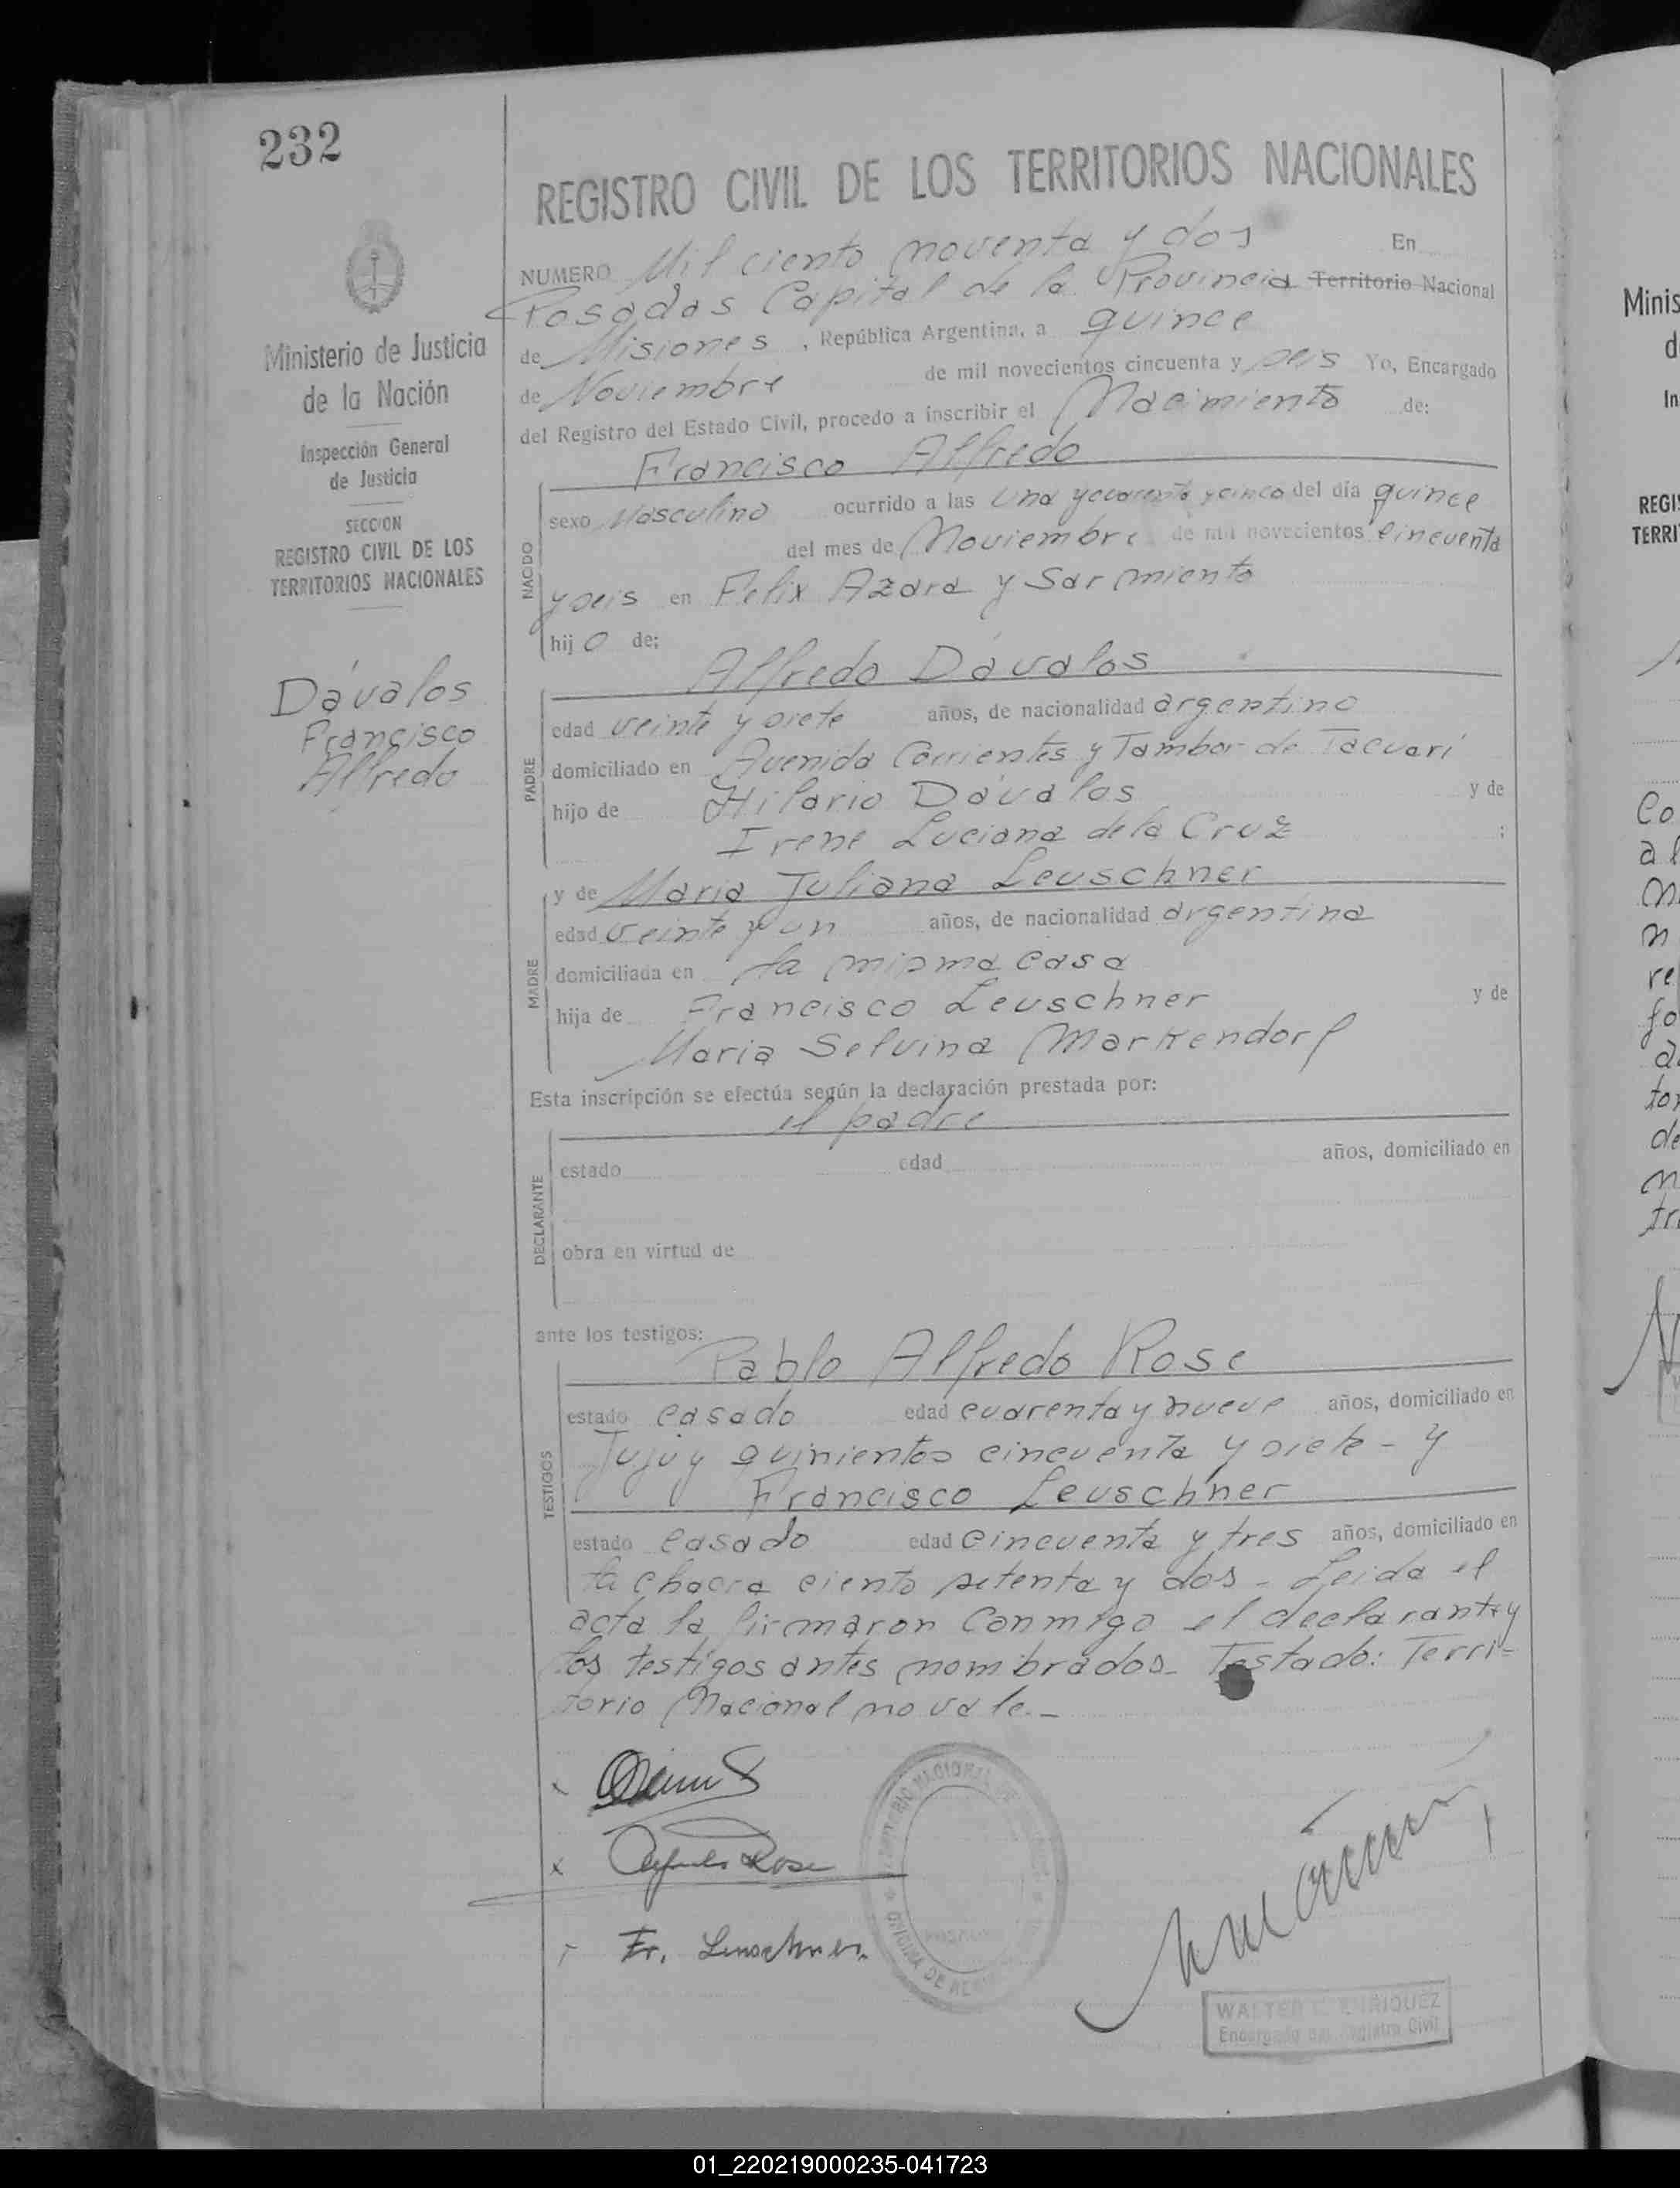 232
REGISTRO CIVIL DE LOS TERRITORIOS NACIONALES
Ministerio de Justicia
de la Nación
Inspección General
de Justicia
SECCION
REGISTRO CIVIL DE LOS
TERRITORIOS NACIONALES
Dávalos
Francisco
Alfredo
NUMERO Mil ciento noventa y dos En
Posadas Capital de la Provincia Territorio Nacional
de Misiones, República Argentina, a quince
de Noviembre de mil novecientos cincuenta y seis Yo, Encargado
del Registro del Estado Civil, procedo a inscribir el Nacimiento de:
Francisco Alfredo
NACIDO
sexo Masculino ocurrido a las una y cuarenta y cinco del día quince
del mes de Noviembre de mil novecientos cincuenta
y seis en Felix Azara y Sarmiento
hijo de:
Alfredo Dávalos
PADRE
edad veinte y siete años, de nacionalidad argentino
domiciliado en Avenida Corrientes y Tambor de Tacuarí
hijo de Hilario Dávalos y de
Irene Luciana de la Cruz ;
y de Maria Juliana Leuschner
MADRE
edad veinte y un años, de nacionalidad argentina
domiciliada en la misma casa
hija de Francisco Leuschner y de
Maria Selvina Markendorf
Esta inscripción se efectúa según la declaración prestada por:
el padre
DECLARANTE
estado edad años, domiciliado en
obra en virtud de
ante los testigos:
Pablo Alfredo Rose
TESTIGOS
estado casado edad cuarenta y nueve años, domiciliado en
Jujuy quinientos cincuenta y siete - y
Francisco Leuschner
estado casado edad cincuenta y tres años, domiciliado en
la chacra ciento setenta y dos - Leida el
acta la firmaron conmigo el declarante y
los testigos antes nombrados - Testado: Terri-
torio Nacional no vale. -
Alfredo Rose
Fr. Leuschner.
OFICINA DE
WALTER ENRIQUEZ
Encargado del Registro Civil
Minis
d
In
REGI
TERRI
01_220219000235-041723